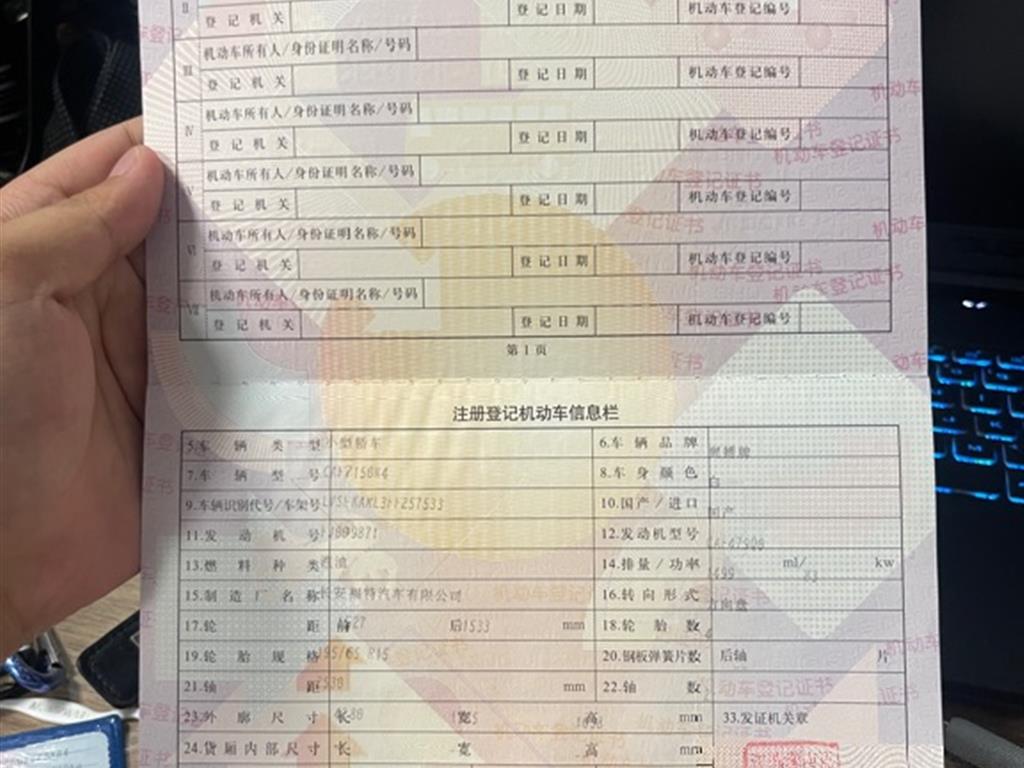 II
登记机关 登记日期 机动车登记编号
III 机动车所有人/身份证明名称/号码
登记机关 登记日期 机动车登记编号
IV 机动车所有人/身份证明名称/号码
登记机关 登记日期 机动车登记编号
V 机动车所有人/身份证明名称/号码
登记机关 登记日期 机动车登记编号
VI 机动车所有人/身份证明名称/号码
登记机关 登记日期 机动车登记编号
VII 机动车所有人/身份证明名称/号码
登记机关 登记日期 机动车登记编号
第1页
注册登记机动车信息栏
5.车辆类型 小型轿车 6.车辆品牌
7.车辆型号 8.车身颜色 白
9.车辆识别代号/车架号 10.国产/进口 国产
11.发动机号 12.发动机型号
13.燃料种类 汽油 14.排量/功率 1499 ml/ 83 kw
15.制造厂名称 长安福特汽车有限公司 16.转向形式 方向盘
17.轮距 前 后1533 mm 18.轮胎数 4
19.轮胎规格 195/65 R15 20.钢板弹簧片数 后轴 片
21.轴距 mm 22.轴数
23.外廓尺寸 长 宽 高 mm 33.发证机关章
24.货厢内部尺寸 长 宽 高 mm
机动车登记证书